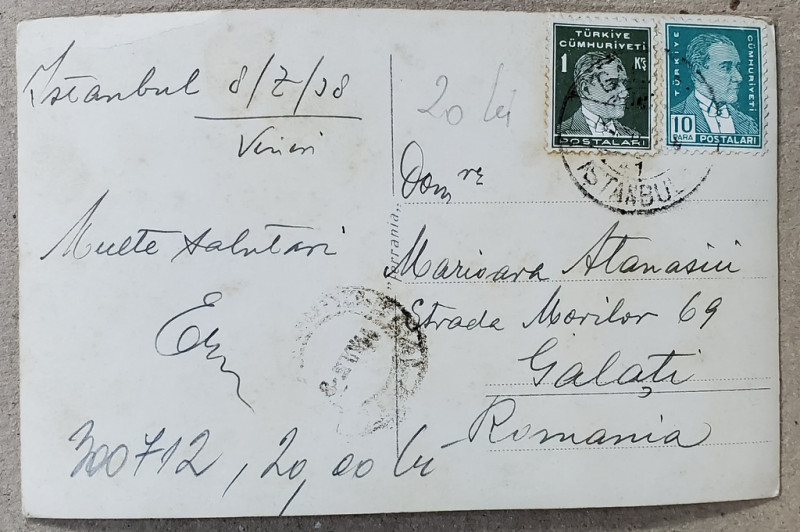 Istanbul 8/Z/38
Vineri
Multe salutari
300712, 20,00 lei
20 lei
TÜRKİYE
CÜMHURİYETİ
1 KŞ
POSTALARI
TÜRKİYE
CÜMHURİYETİ
10
PARA
POSTALARI
ISTANBUL
Marioara Atanasiu
Strada Morilor 69
Galaţi
Romania